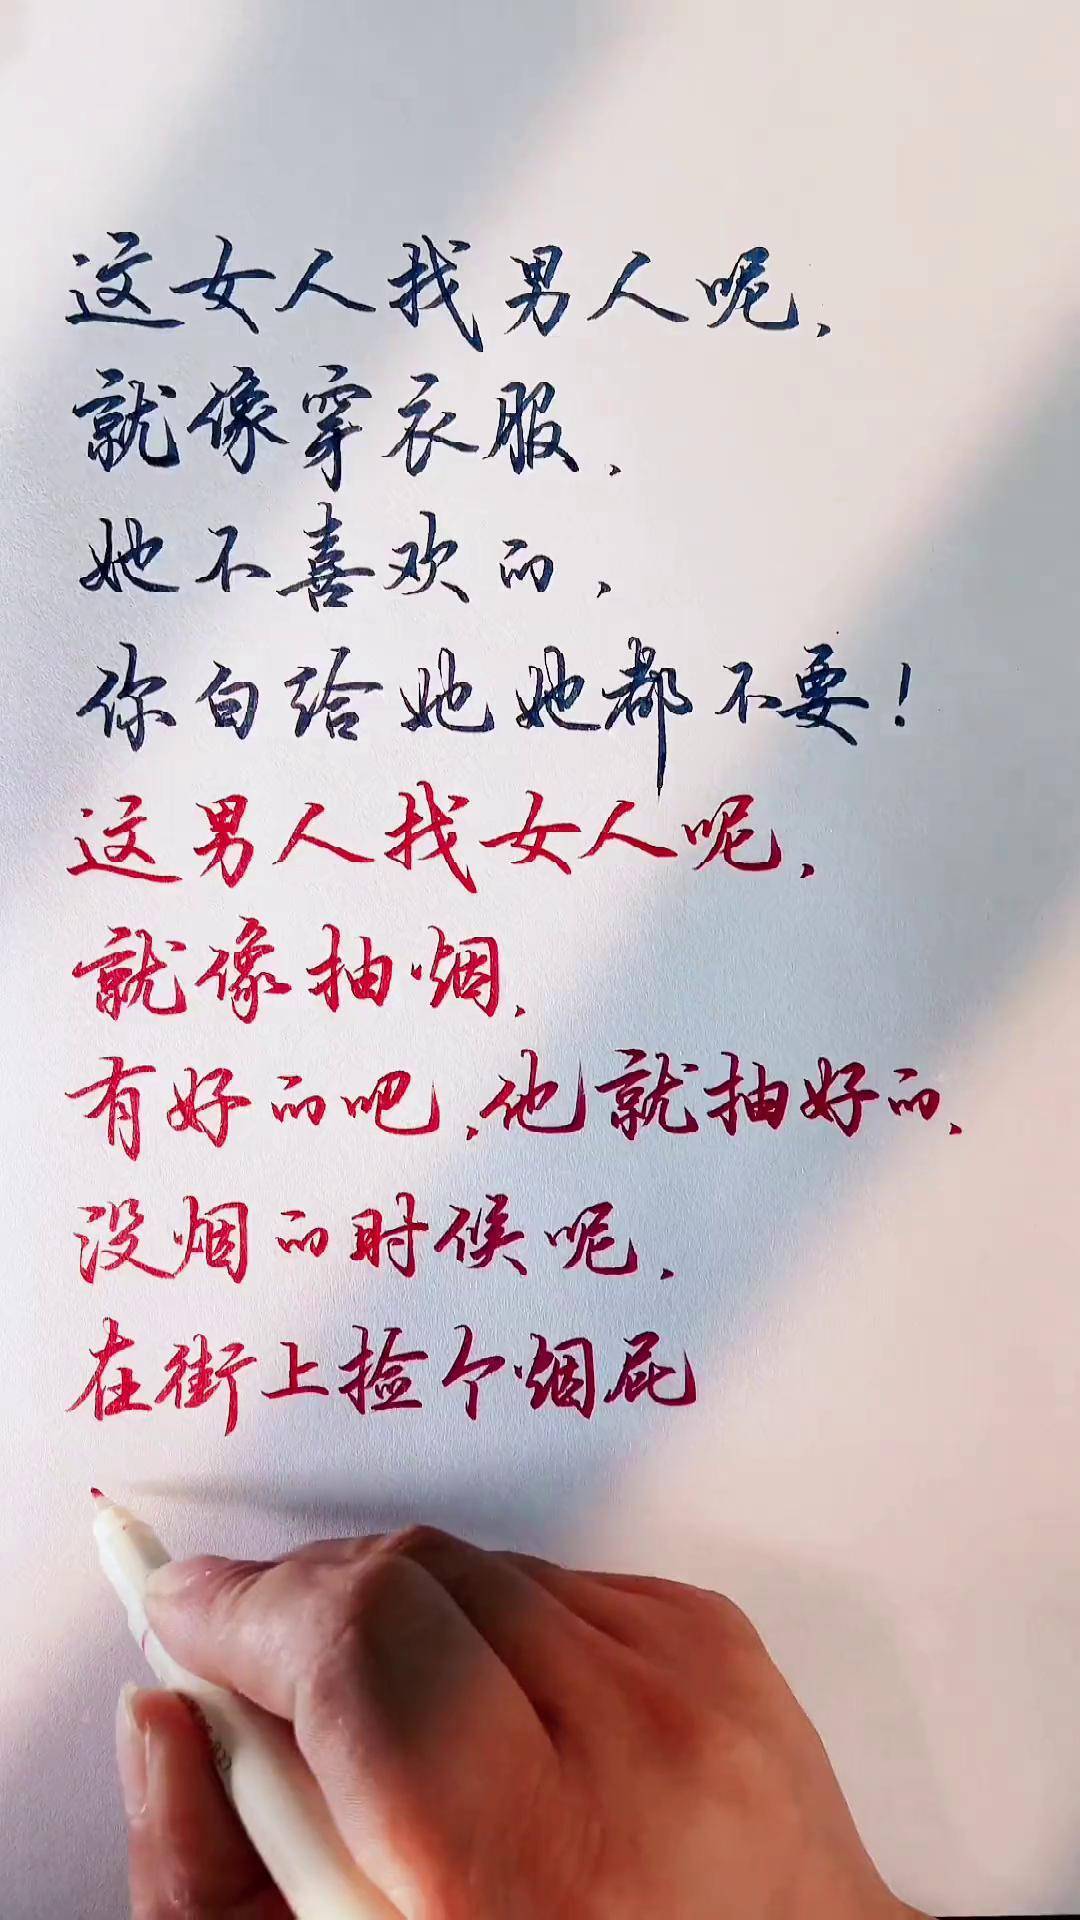 这女人找男人呢，
就像穿衣服，
她不喜欢的，
你白给她她都不要！
这男人找女人呢，
就像抽烟，
有好的吧，他就抽好的，
没烟的时候呢，
在街上捡个烟屁